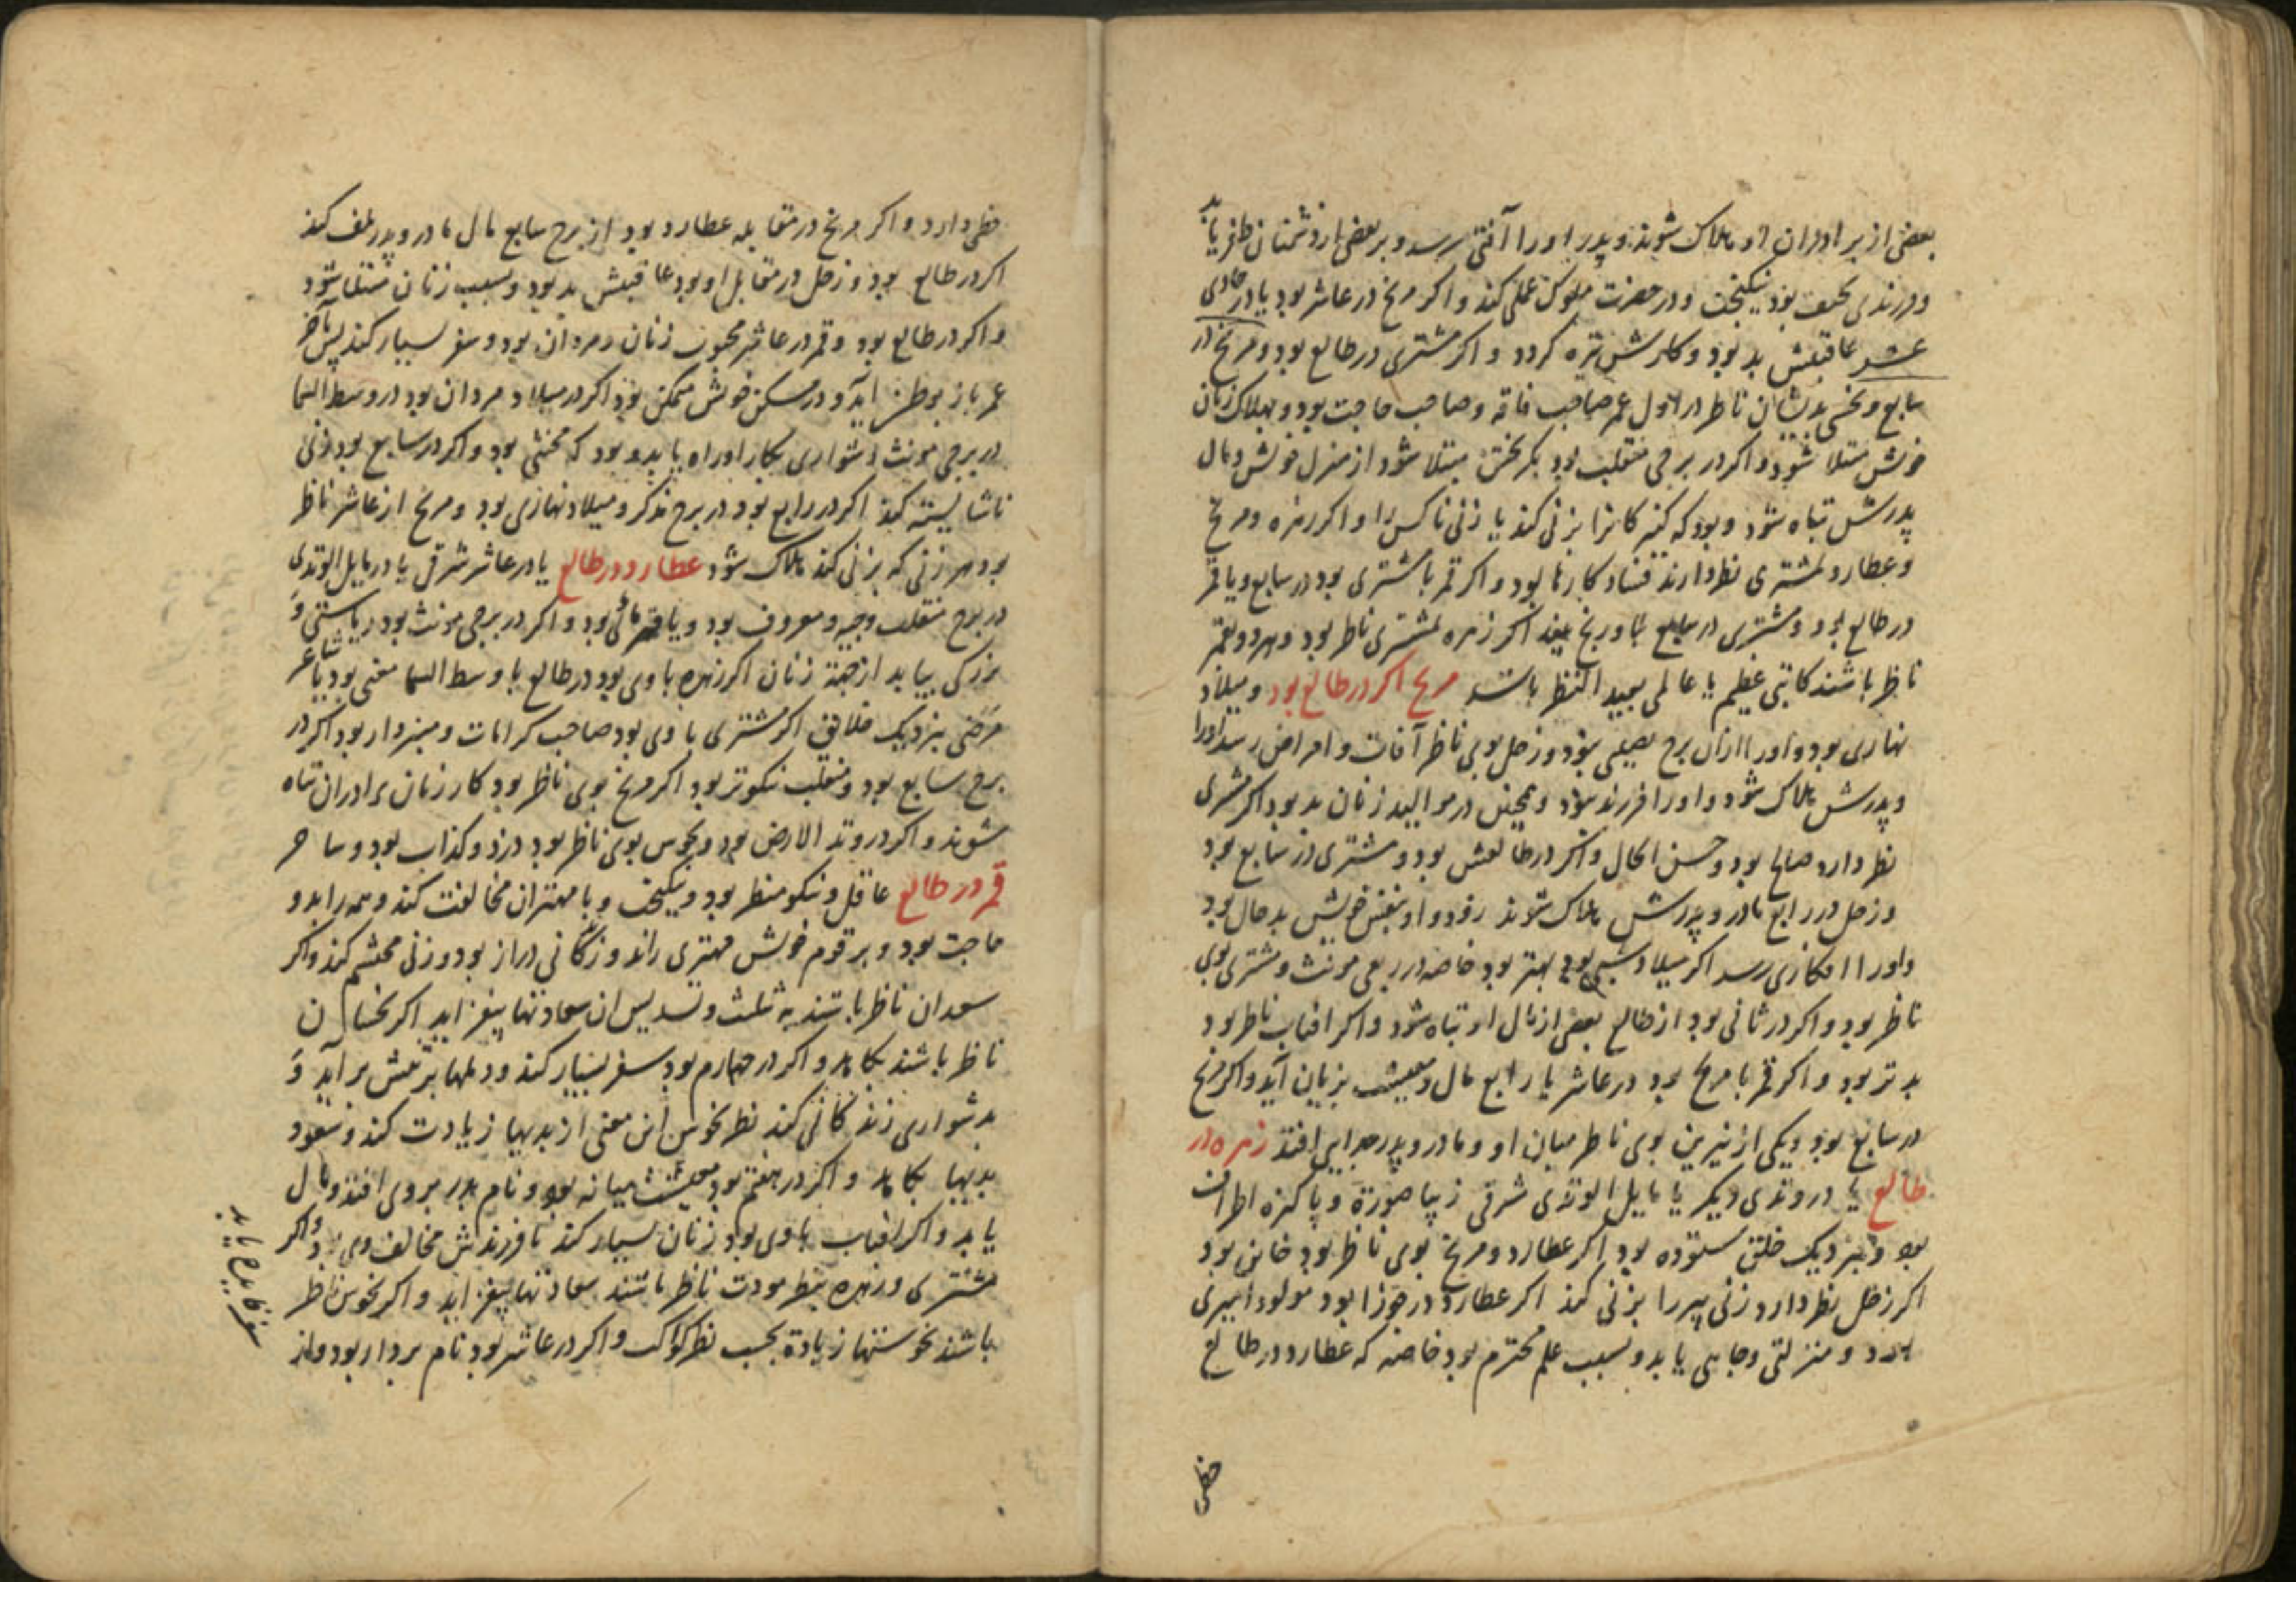 بعضی از برادران او هلاک شوند و پدر او را آفتی رسد و بر بعضی از دشمنان ظفر یابد
و فرزندی بود نیکبخت و در حضرت ملوک عملی کند و اکر مریخ در عاشر بود یا در حادی
عشر عاقبتش بد بود و کارش تیره کردد و اکر مشتری در طالع بود و مریخ در
سابع و نحسی بدیشان ناظر در اول عمر صاحب فاقه و صاحب حاجت بود و بهلاک زنان
خویش مبتلا شود و اکر در برجی منقلب بود بکریختن مبتلا شود از منزل خویش و مال
پدرش تباه شود و بود که کنیزکان را بزنی کند یا زنی ناکس را و اکر زهره و مریخ
و عطارد بمشتری نظر دارند فساد کارها بود و اکر قمر با مشتری بود در سابع و یا قمر
در طالع بود و مشتری در سابع اکر زهره بمشتری ناظر بود و هردو بقمر
ناظر باشند کاتبی عظیم یا عالمی بعید النظر باشد مریخ اکر در طالع بود و میلاد
نهاری بود و او را از آن برج نصیبی بود و زحل بوی ناظر آفات و امراض رسد او را
و پدرش هلاک شود و او را فرزند نبود و همچنین در موالید زنان بد بود اکر مشتری
نظر دارد صالح بود و حسن الحال و اکر در طالعش بود و مشتری در سابع بود
و زحل در رابع مادر و پدرش هلاک شوند زود و او بنفس خویش بدحال بود
و او را افکاری رسد اکر میلاد شبی بود بهتر بود خاصه در ربعی مونث و مشتری بوی
ناظر بود و اکر در ثانی بود از طالع بعضی از مال او تباه شود و اکر افتاب ناظر بود
بدتر بود و اکر قمر با مریخ بود در عاشر یا رابع مال و معیشت بزیان آید و اکر مریخ
در سابع بود و یکی از نیرین بوی ناظر میان او و مادر و پدر جدایی افتد زهره در
طالع یا در وتدی دیکر یا مایل الوتدی شرقی زیبا صورة و پاکیزه اطراف
بود و بنزدیک خلق ستوده بود اکر عطارد و مریخ بوی ناظر بود خاین بود
اکر زحل نظر دارد زنی پیر را بزنی کند اکر عطارد در جوزا بود مولود امیری
بود و منزلتی و جاهی یابد و بسبب علم محترم بود خاصه که عطارد در طالع
حظی
حظی دارد و اکر مریخ در مقابله عطارد بود از برج سابع مال مادر و پدر تلف کند
اکر در طالع بود و زحل در مقابل او بود عاقبتش بد بود و بسبب زنان مبتلا شود
و اکر در طالع بود و قمر در عاشر محبوب زنان و مردان بود و سفر بسیار کند پس باخر
عمر باز بوطن آید و در مسکن خویش متمکن بود اکر در میلاد مردان بود در وسط السما
در برجی مونث دشواری بکار او راه یابد و بود که مخنثی بود و اکر در سابع بود زنی
ناشایسته کند اکر در رابع بود در برج مذکر و میلاد نهاری بود و مریخ از عاشر ناظر
بود هر زنی که بزنی کند هلاک شود عطارد در طالع یا در عاشر شرقی یا در مایل الوتدی
در برج منقلب وجیه و معروف بود و یا قهرمانی بود و اکر در برجی مونث بود ریاستی و
بزرکی بیابد از جهة زنان اکر زهره با وی بود در طالع یا وسط السما مغنی بود یا شاعر
مرضی بنزدیک خلایق اکر مشتری با وی بود صاحب کرامات و هنر دار بود اکر در
برج سابع بود و منقلب نیکوتر بود اکر مریخ بوی ناظر بود کار زنان برادران تباه
شوند و اکر در وتد الارض بود و نحوس بوی ناظر بود دزد و کذاب بود و ساحر
قمر در طالع عاقل و نیکو منظر بود و نیکبخت و با مهتران مخالفت کند و همه را بدو
حاجت بود و بر قوم خویش مهتری راند و زندکانی دراز بود و زنی محتشم کند و اکر
سعدان ناظر باشند به تثلث و تسدیس ان سعادتها بیفزاید اکر نحسان
ناظر باشند بکاهد و اکر در چهارم بود سفر بسیار کند و دلها بر آید و
بدشواری زندکانی کند نظر نحوس این معنی از بدیها زیادت کند و سعود
بدیها بکاهد و اکر در هفتم بود معیشت میانه بود و نام پدر بر وی افتد و مال
یابد و اکر افتاب با وی بود زنان بسیار کند تا فرزندش مخالف وی بود و اکر
مشتری و زهره بنظر مودت ناظر باشند سعادتها بیفزاید و اکر نحوس ناظر
باشند نحوستها زیادة بحسب نظر کواکب و اکر در عاشر بود نام بردار بود و از
سفر فایده یابد